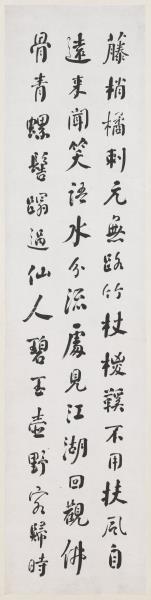 藤梢橘刺元無路竹杖椶鞵不用扶風自
遠來聞笑語水分流處見江湖回觀佛
骨青螺髻蹋遍仙人碧玉壺野客歸時